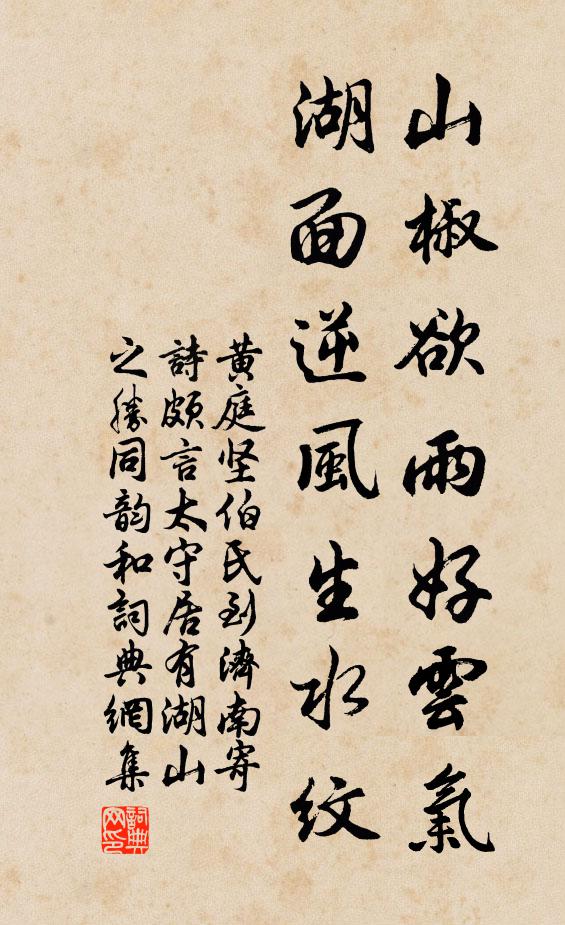 山椒欲雨好雲氣
湖面逆風生水紋
黄庭坚伯氏到濟南寄
詩頗言太守居有湖山
之勝同韵和詞典網集
詞典
网印